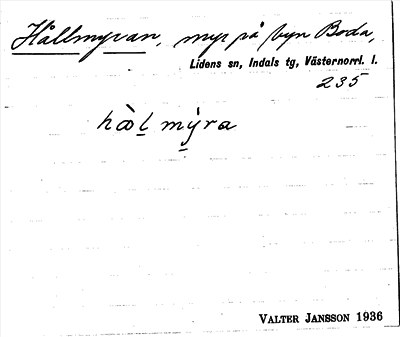 Hållmyran, myr på byn Boda,
Lidens sn, Indals tg, Västernorrl. l.
235
hὰl mýra
VALTER JANSSON 1936